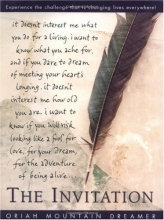 Experience the challenge that is changing lives everywhere!
it doesnt interest me what
you do for a living. i want to
know what you ache for,
and if you dare to dream
of meeting your heart's
longing. it doesnt
interest me how old
you are. i want to
know if you will risk
looking like a fool for
love, for your dream,
for the adventure
of being alive...
THE INVITATION
ORIAH MOUNTAIN DREAMER